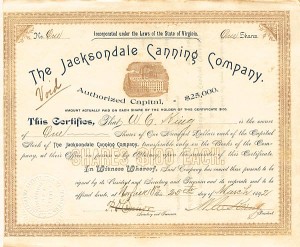 No. One
Incorporated under the Laws of the State of Virginia.
One Shares
The Jacksondale Canning Company.
Void
Authorized Capital, $25,000.
AMOUNT ACTUALLY PAID ON EACH SHARE BY THE HOLDER OF THIS CERTIFICATE $100.
This Certifies, That W. C. King is the owner
of One Share of One Hundred Dollars each of the Capital
Stock of The Jacksondale Canning Company, transferable only on the Books of the
Company, at their Office of this Certificate.
In Witness Whereof, said Company has caused these presents to be
signed by its President and Secretary and Treasurer and its corporate seal to be
affixed hereto, at this day of March 1892
Secretary and Treasurer
President